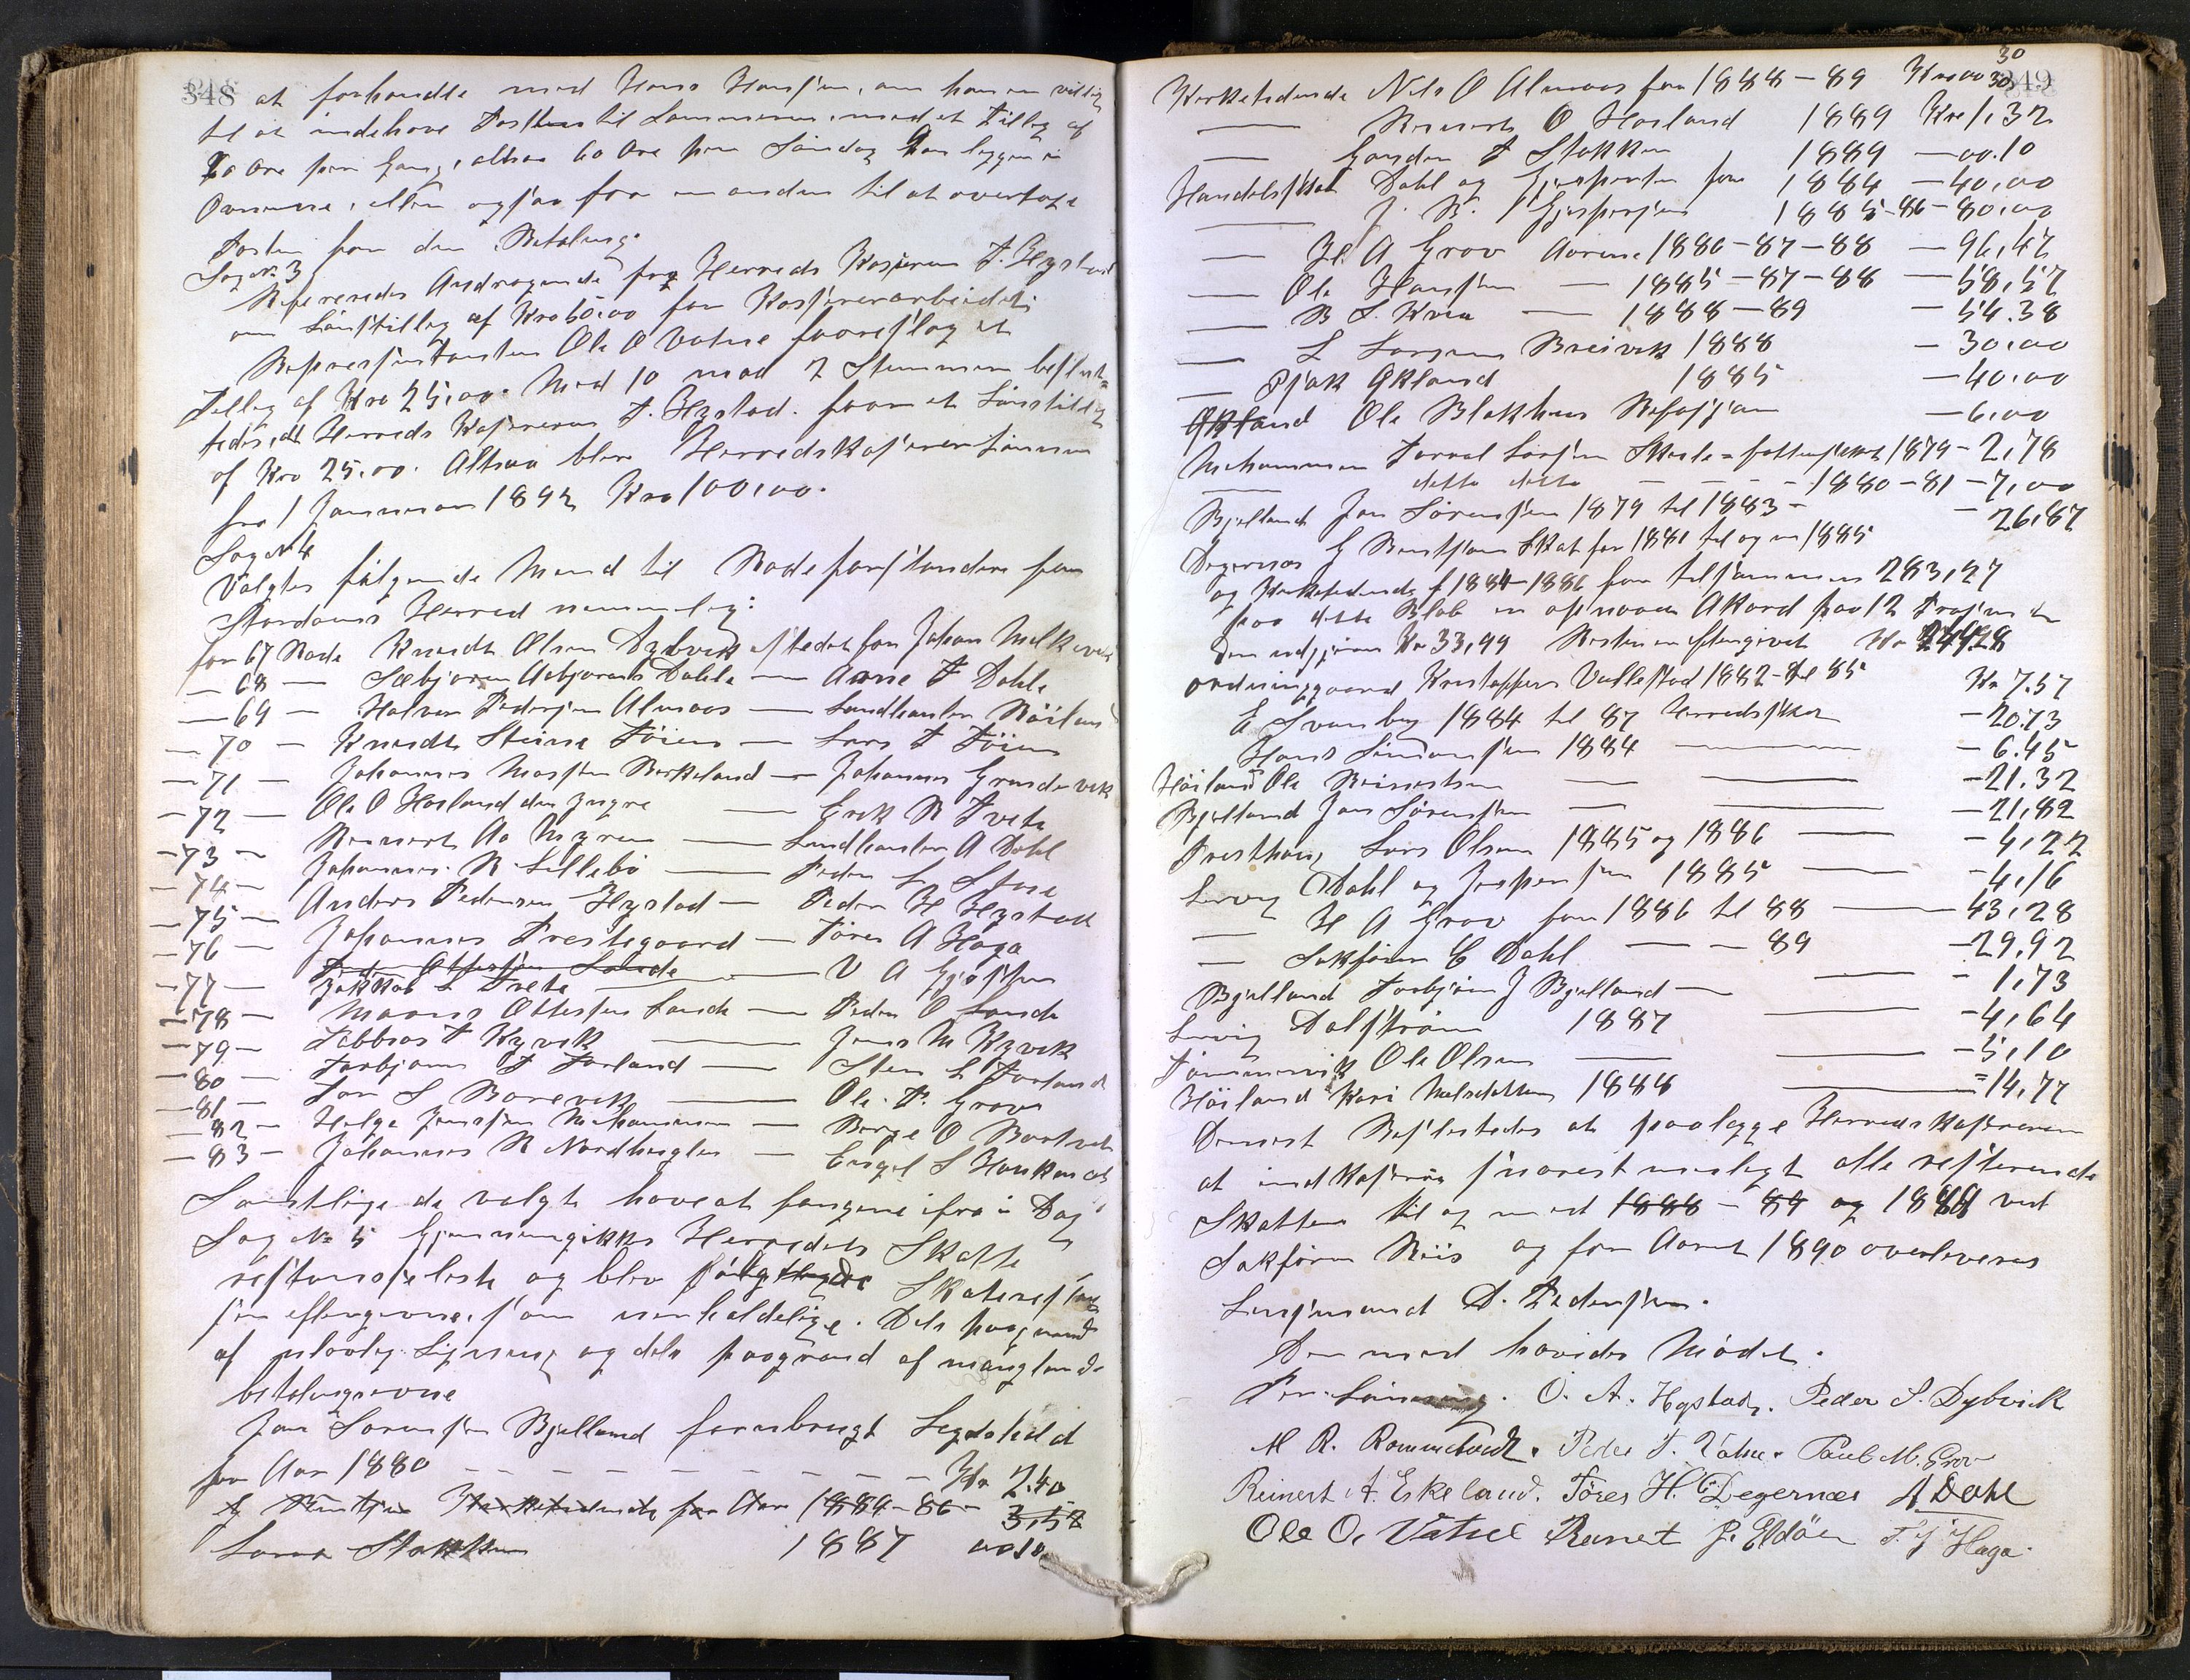 348
at forhandle med Hans Hansen, om han er villig
til at indehave Posthus til Lammenes med et Tillæg af
10 Øre pr Gang, altsaa 60 Øre pr Søndag han ligger i
ellers ogsaa faa en anden til at overtage
Posten for den Betaling.
Sag № 3
Refereredes Andragende fra Herreds Kasserer T. Hystad
om Lønstillæg af Kro 50,00 for Kassererarbeidet.
Repræsentanten Ole O Vatne foreslog et
Tillæg af Kro 25,00. Med 10 mod 2 Stemmer beslut=
tedes, at Herreds Kassereren T. Hystad. faar et Lønstillæg
af Kro 25.00. Altsaa blir Herredskasserer Lønnen
fra 1 Januar 1892 Kro 100,00.
Sag № 4
Valgtes følgende Mænd til Rodeforstandere for
Stordøens Herred nemmelig:
for 67 Rode Knudt Olsen Dybvik istedet for Johan Melkevik
— 68 — Sæbjørn Asbjørns Dahle — Arne T Dahle
— 69 — Halvor Pedersen Almaas — Landhandler Høiland
— 70 — Knudt Steine Tøien — Lars T Tøien
— 71 — Johannes Monsen Birkeland — Johannes Grunde vik
— 72 — Ole O Hovland den yngre — Erik R Tveta
— 73 — Reinert Aa Myren — Landhandler A Dahl
— 74 — Johannes R Lillebø — Peder L
— 75 — Anders Pedersen Hystad — Peder H Hystad
— 76 — Johannes Prestegaard — Tøres A Haga
— 77 — Jakkob L Tveta — V A Gjøsten
— 78 — Mons Ottesen Sande — Peder O Sande
— 79 — Tebbias T Kyvik — Jens M Kyvik
— 80 — Torbjørn T Førland — Sten L Førland
— 81 — Jon S Borevik — Ole T. Grov
— 82 — Helge Jensen Mehammer — Børge O
— 83 — Johannes N Nordhuglen — Engel S
Samtlige de valgte have at fungere ifra i Dag
Sag № 5 Gjennemgikkes Herredets Skatte
restanseliste og blev følgende Skaterestan
ser eftergivne, som uerholdelige. Dels paagrund
af ulovlig Ligning og dels paagrund af manglende
betalingsevne
Jon Sørensen Bjelland forubrugt Legdehold
for Aar 1880 — — — — — — Kr 2.40
G Bentsen Kirketiende for Aar 1884-86 — 3,58
Lars Stokken 1887 00 10
349
Kirketiende Nils O Almaas for 1888-89 Kro 00 30
— Reinert O Hovland 1889 Kro 1,32
— T Stokken 1889 — 00.10
Handelsskat Dahl og Jespersen for 1884 — 40,00
— J. B. Jespersen 1885-86 — 80,00
— H A Grov Aarene 1886-87-88 — 96,47
— Ole Hansen — 1885-87-88 — 58,57
— B S. Kven — 1888-89 — 54.38
— L Larsen Breivik 1888 — 30,00
— Isak Økland 1885 — 40,00
Økland Ole Blokhus — 6,00
Mehammer Torval Larsen Skole= fattigskat 1879 — 2,78
— ditto ditto — — — 1880-81 — 7,00
Bjelland Jon Sørensen 1879 til 1883 — 26,87
Degernes G Bentsen Skat for 1881 til og m 1885
og Kirketiende f 1884-1886 for tilsammen 283,27
paa dette Beløb er opnaaet Akord paa 12 Prosent
den udgjøre Kr 33,99 Resten er eftergivet Kr 249,28
Kristoffer Vallestad 1882 til 85 Kr 7.57
E Svanberg 1884 til 87 Herredsskat — 20.73
Hans Simonsen 1884 — 6.45
Høiland Ole Reinertsen — 21.32
Bjelland Jon Sørensen — 21,82
Presthaug Lars Olsen 1885 og 1886 — 4,22
Lervig Dahl og Jespersen 1885 — 4,16
— H A Grov for 1886 til 88 — 43,28
— Sakfører C Dahl — 89 — 29.92
Bjelland Torbjørn J Bjelland — 1,73
Lervig Dalstrøm 1887 — 4,64
Tømmervik Ole Olsen — 5,10
Høiland Kari Nilsdatter 1888 — 14,77
Dernest Beslutedes at paalegge Herredskassereren
at indkassere snarest muligt alle resterende
Skatter til og med 1888 - 89 og 1889 ved
Sakfører Riis og for Aaret 1890 overleveres
Lensmand D. Pedersen.
Der med hevedes Mødet.
O. A. Hystad. Peder S. Dybvik
M R. Rommetvedt. Peder T. Vatne. Paul M. Grov
Reinert A. Eskeland. Tøres H. Degernæs A Dahl
Ole O. Vatne Reinert J. Eldøen T. J Haga.